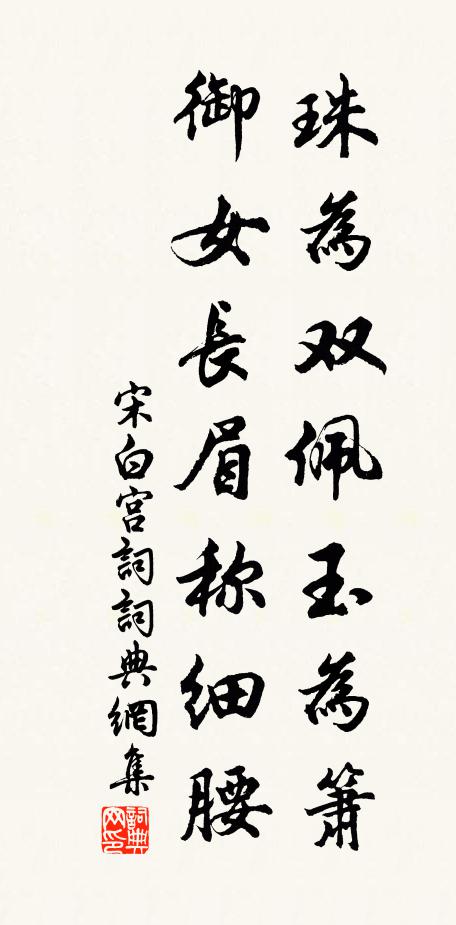 珠為双佩玉為簫
御女長眉称細腰
宋白宫詞詞典網集
詞典网印